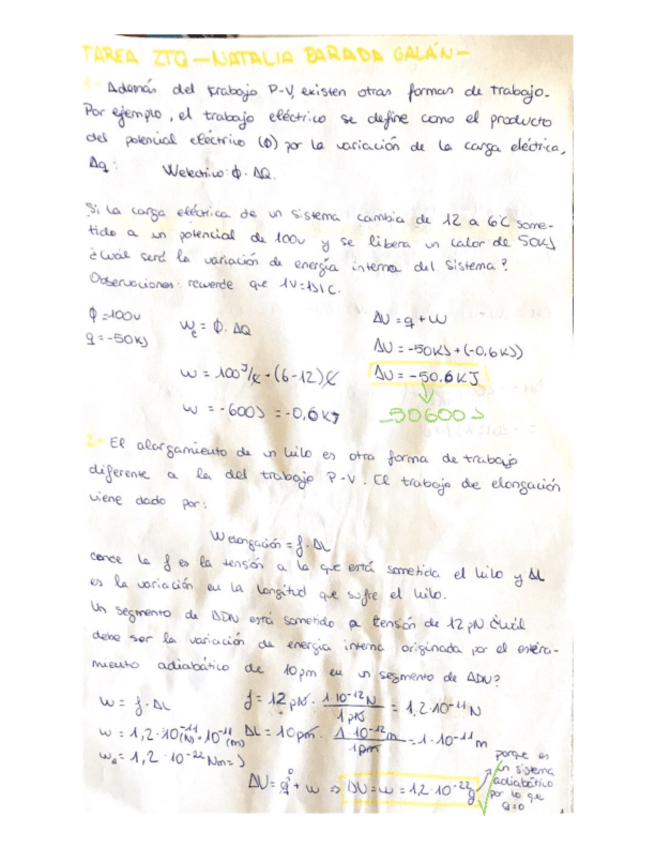 TAREA 2TQ - NATALIA BARADA GALÁN -
1- Además del trabajo P-V, existen otras formas de trabajo.
Por ejemplo, el trabajo eléctrico se define como el producto
del potencial eléctrico (Φ) por la variación de la carga eléctrica,
Δq: Welectrico: Φ · ΔQ.
Si la carga eléctrica de un sistema cambia de 12 a 6C some-
tido a un potencial de 100v y se libera un calor de 50KJ
¿Cuál será la variación de energía interna del sistema?
Observaciones: recuerde que 1V=1J/C.
Φ=100v
q=-50KJ
We = Φ · ΔQ
W = 100 J/C · (6-12) C
W = -600J = -0,6 KJ
ΔU = q + W
ΔU = -50KJ + (-0,6KJ)
ΔU = -50.6 KJ
-50600J
2- El alargamiento de un hilo es otra forma de trabajo
diferente a la del trabajo P-V. El trabajo de elongación
viene dado por:
Welongación = f · ΔL
donde la f es la tensión a la que está sometida el hilo y ΔL
es la variación en la longitud que sufre el hilo.
Un segmento de ADN está sometido a tensión de 12 pN ¿Cuál
debe ser la variación de energía interna originada por el estira-
miento adiabático de 10pm en un segmento de ADN?
W = f · ΔL
W = 1,2 · 10⁻¹¹(N) · 10⁻¹¹(m)
We = 1,2 · 10⁻²² Nm = J
f = 12 pN · 1·10⁻¹² N / 1 pN = 1,2 · 10⁻¹¹ N
ΔL = 10pm · 1·10⁻¹² m / 1pm = 1 · 10⁻¹¹ m
ΔU = q⁰ + W ⇒ ΔU = W = 1,2 · 10⁻²² J
porque es
un sistema
adiabático
por lo que
q=0